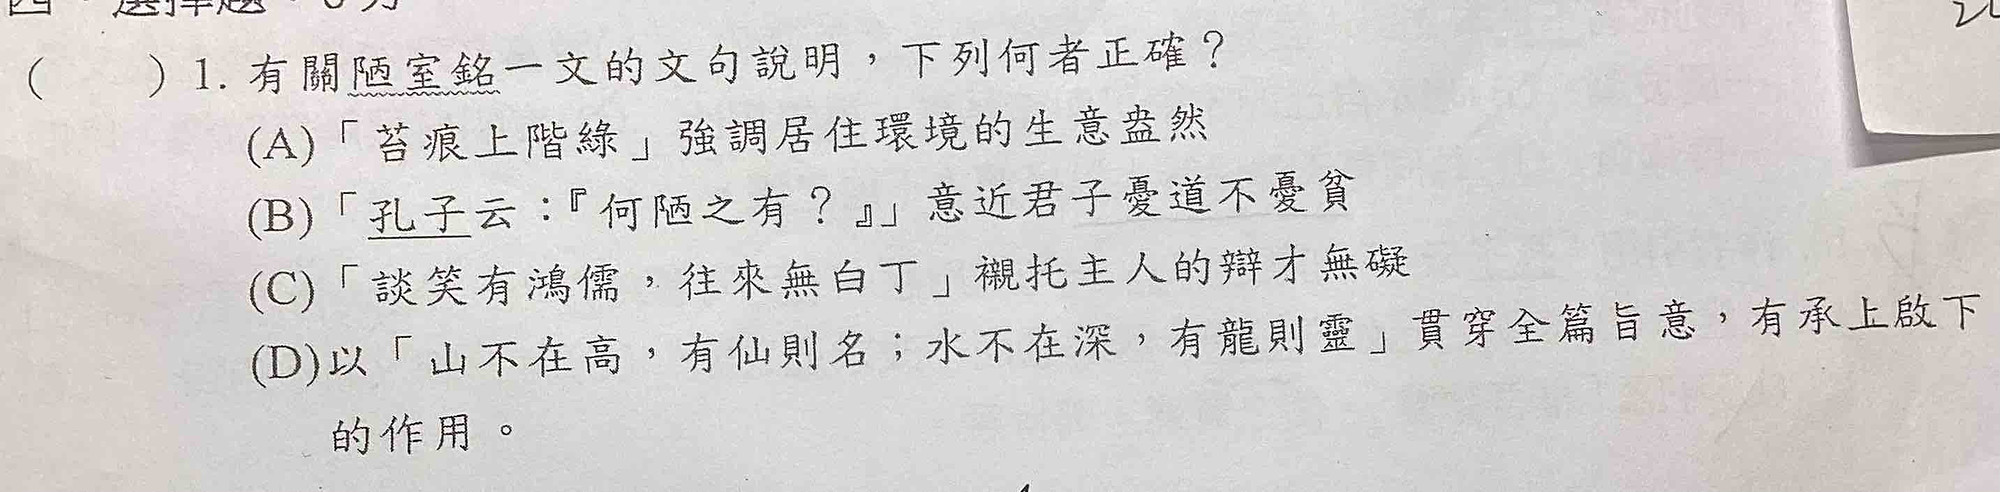 四、選擇題：6分
(　　) 1. 有關陋室銘一文的文句說明，下列何者正確？
(A)「苔痕上階綠」強調居住環境的生意盎然
(B)「孔子云：『何陋之有？』」意近君子憂道不憂貧
(C)「談笑有鴻儒，往來無白丁」襯托主人的辯才無礙
(D)以「山不在高，有仙則名；水不在深，有龍則靈」貫穿全篇旨意，有承上啟下
的作用。